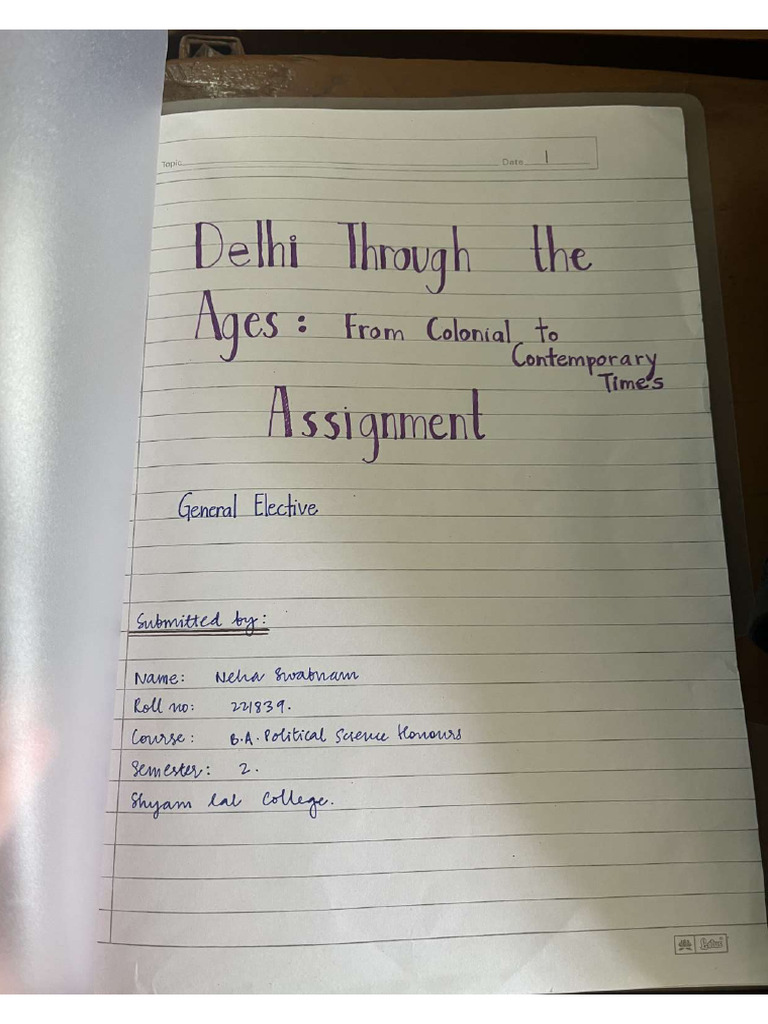 Topic Date 1
Delhi Through the
Ages: From Colonial to
Contemporary
Times
Assignment
General Elective
Submitted by:
Name: Neha Swabnam
Roll no: 221839.
Course: B.A. Political Science Honours
Semester: 2.
Shyam lal College.